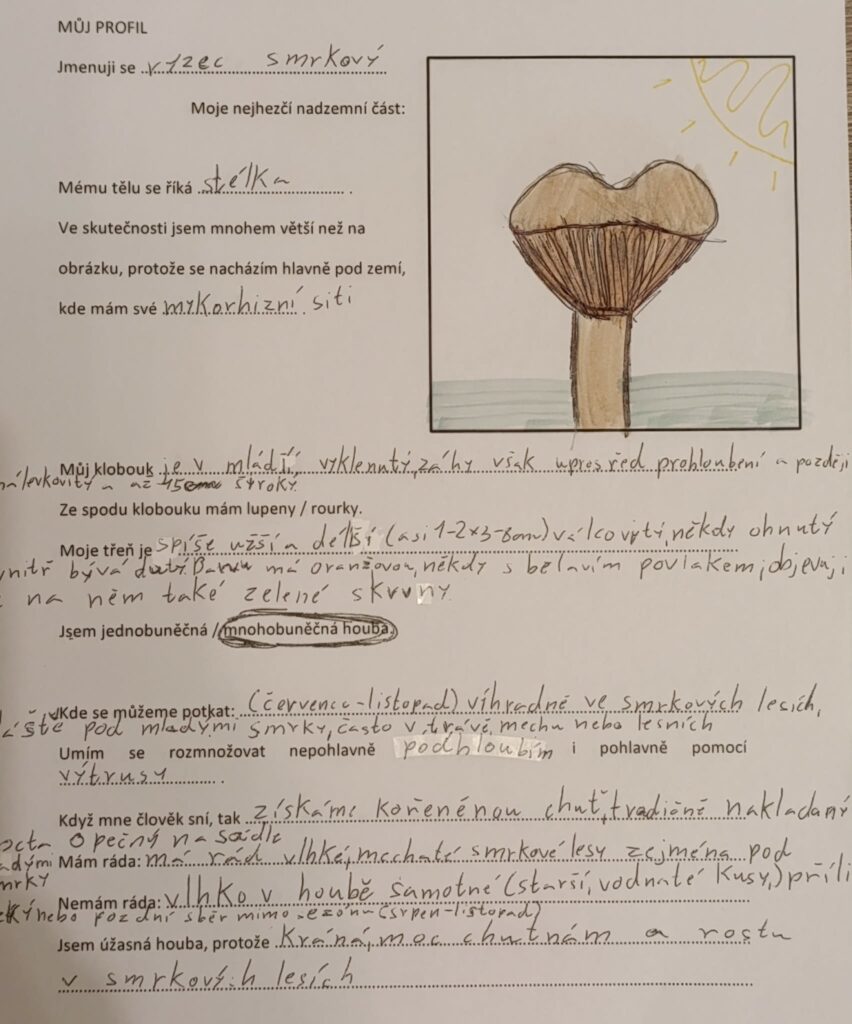 MŮJ PROFIL
Jmenuji se ryzec smrkový
Moje nejhezčí nadzemní část:
Mému tělu se říká stélka .
Ve skutečnosti jsem mnohem větší než na
obrázku, protože se nacházím hlavně pod zemí,
kde mám své mykorhizní siti
Můj klobouk je v mládíí, vyklenntý, záhy však uprostřed prohloubení a později
nálevkovitý a až 15cm široký.
Ze spodu klobouku mám lupeny / rourky.
Moje třeň je spíše užší a delší (asi 1-2×3-8cm) válcovytý, někdy ohnutý
vnitř bývá dutý Barvu má oranžovou, někdy s belavím povlakem, objevají
na něm také zelené skvrny.
Jsem jednobuněčná / mnohobuněčná houba.
Kde se můžeme potkat: (červenec-listopad) víhradně ve smrkových lesích,
zvláště pod mladými smrky, často v trávě, mechu nebo lesních
Umím se rozmnožovat nepohlavně podhloubím i pohlavně pomocí
výtrusy .
Když mne člověk sní, tak získáme kořeněnou chuť, tradičně nakladaný
octa Opečný na sádle
Mám ráda: má rád vlhké, mechaté smrkové lesy zejména pod
mladými smrky
Nemám ráda: vlhko v houbě samotné (starší, vodnaté kusy,) příli
nebo pozdní sběr mimo sezónu (srpen-listopad)
Jsem úžasná houba, protože Krásná, moc chutnám a rostu
v smrkových lesích